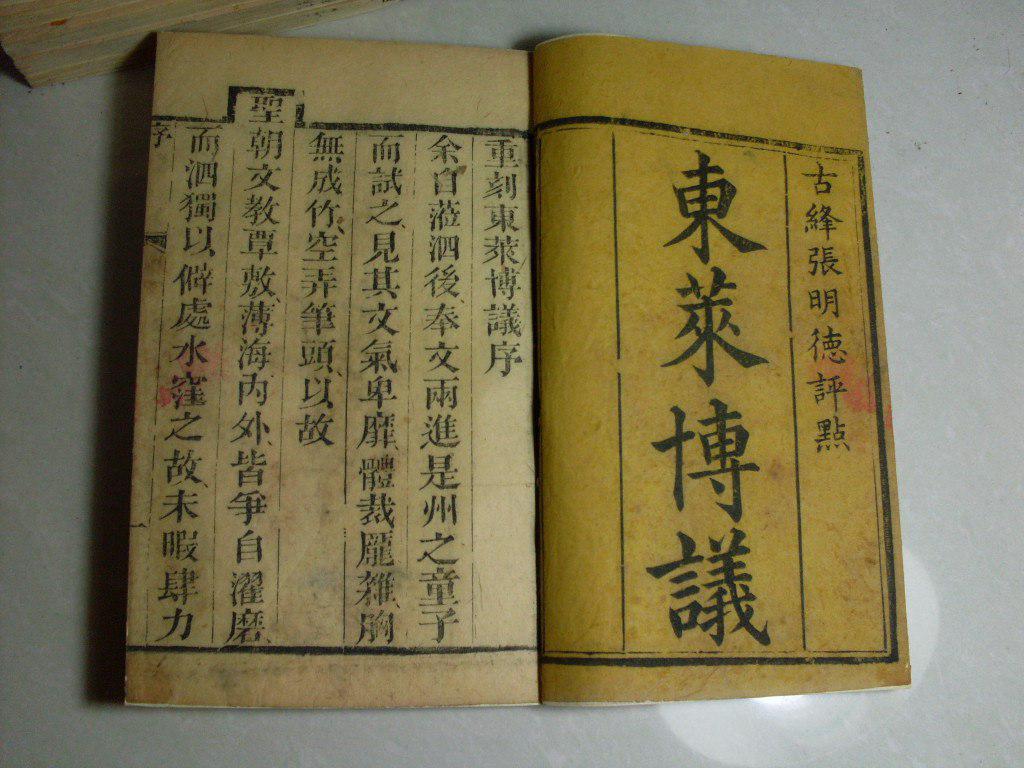 古絳張明徳評點
東萊博議
重刻東萊博議序
余自蒞泗後、奉文兩進是州之童子
而試之、見其文氣卑靡、體裁龐雜、胸
無成竹、空弄筆頭、以故
聖朝文教覃敷、薄海內外、皆爭自濯磨、
而泗獨以僻處水窪之故、未暇肆力
序
一